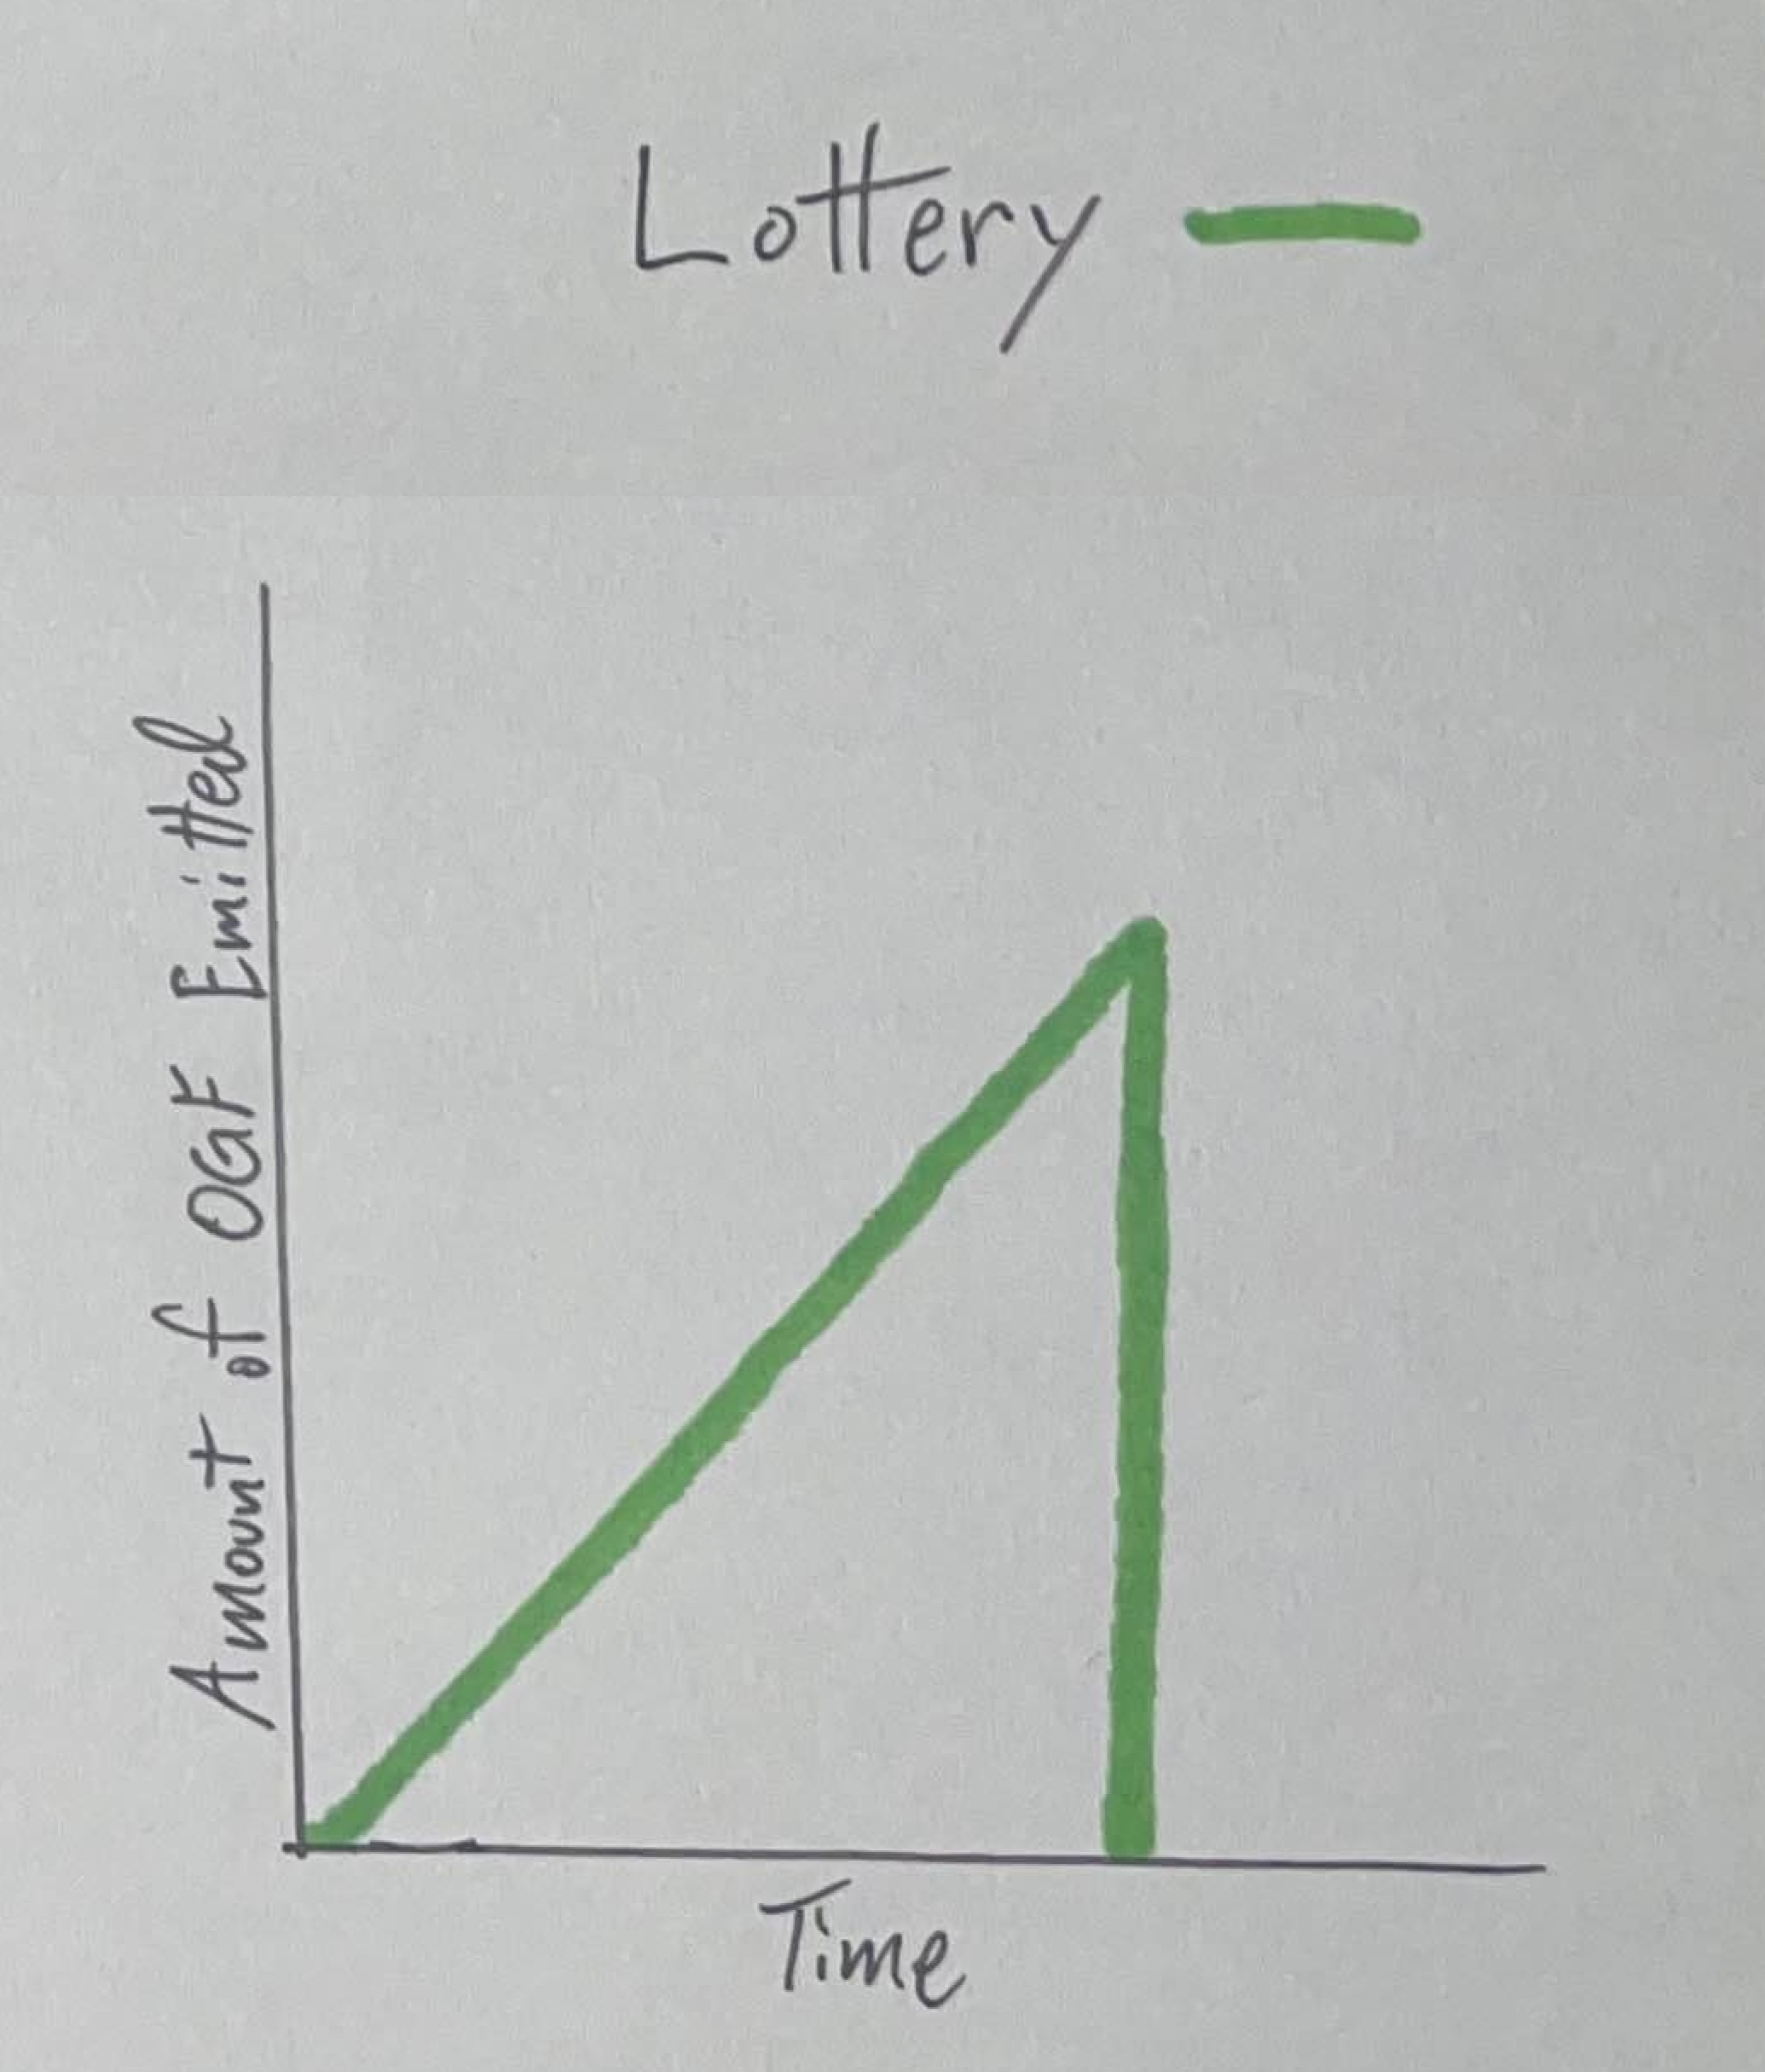 Lottery
Amount of OGF Emitted
Time